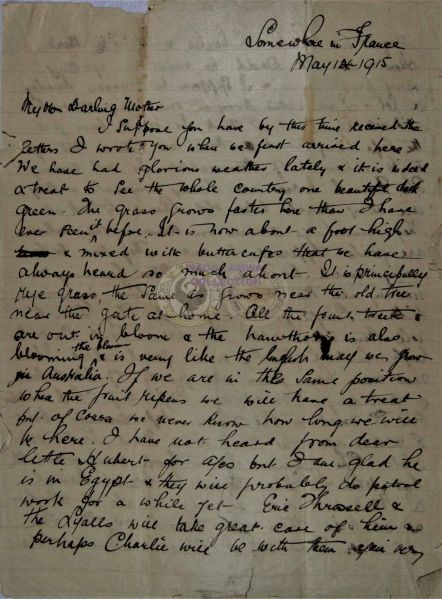 Somewhere in France
May 1st 1915
My Own Darling Mother
I suppose you have by this time received the
letters I wrote you when we first arrived here.
We have had glorious weather lately & it is indeed
a treat to see the whole country one beautiful dark
green. The grass grows faster here than I have
ever seen it before. It is now about a foot high
& mixed with buttercups that we have
always heard so much about. It is principally
Rye grass, the same as grows near the old tree
near the gate at home. All the fruit trees
are out in bloom & the hawthorn is also
blooming & the bloom is very like the English may we grow
in Australia. If we are in this same position
when the fruit ripens we will have a treat
but of course we never know how long we will
be here. I have not heard from dear
little Hubert for ages but I am glad he
is in Egypt & they will probably do patrol
work for a while yet. Eric Throssell &
the Lyalls will take great care of him &
perhaps Charlie will be with them again very